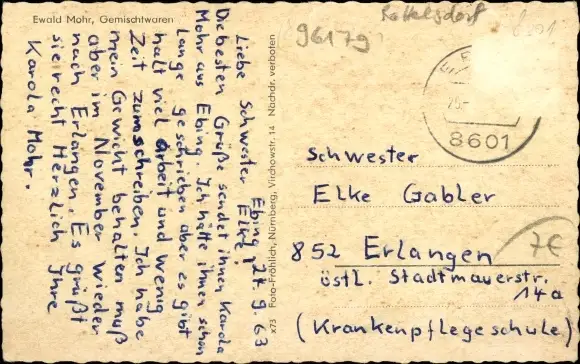 Ewald Mohr, Gemischtwaren
Ebing 24. 9. 63
Liebe Schwester Elke!
Die besten Grüße sendet ihnen Karola
Mohr aus Ebing. Ich hätte ihnen schon
lange geschrieben aber es gibt
halt viel Arbeit und wenig
Zeit zum schreiben. Ich habe
mein Gewicht behalten muß
aber im November wieder
nach Erlangen. Es grüßt
sie recht Herzlich Ihre
Karola Mohr.
x73 Foto-Fröhlich, Nürnberg, Virchowstr. 14 Nachdr. verboten
96179
8601
Schwester
Elke Gabler
852 Erlangen
östl. Stadtmauerstr.
14a
(Krankenpflegeschule)
7€